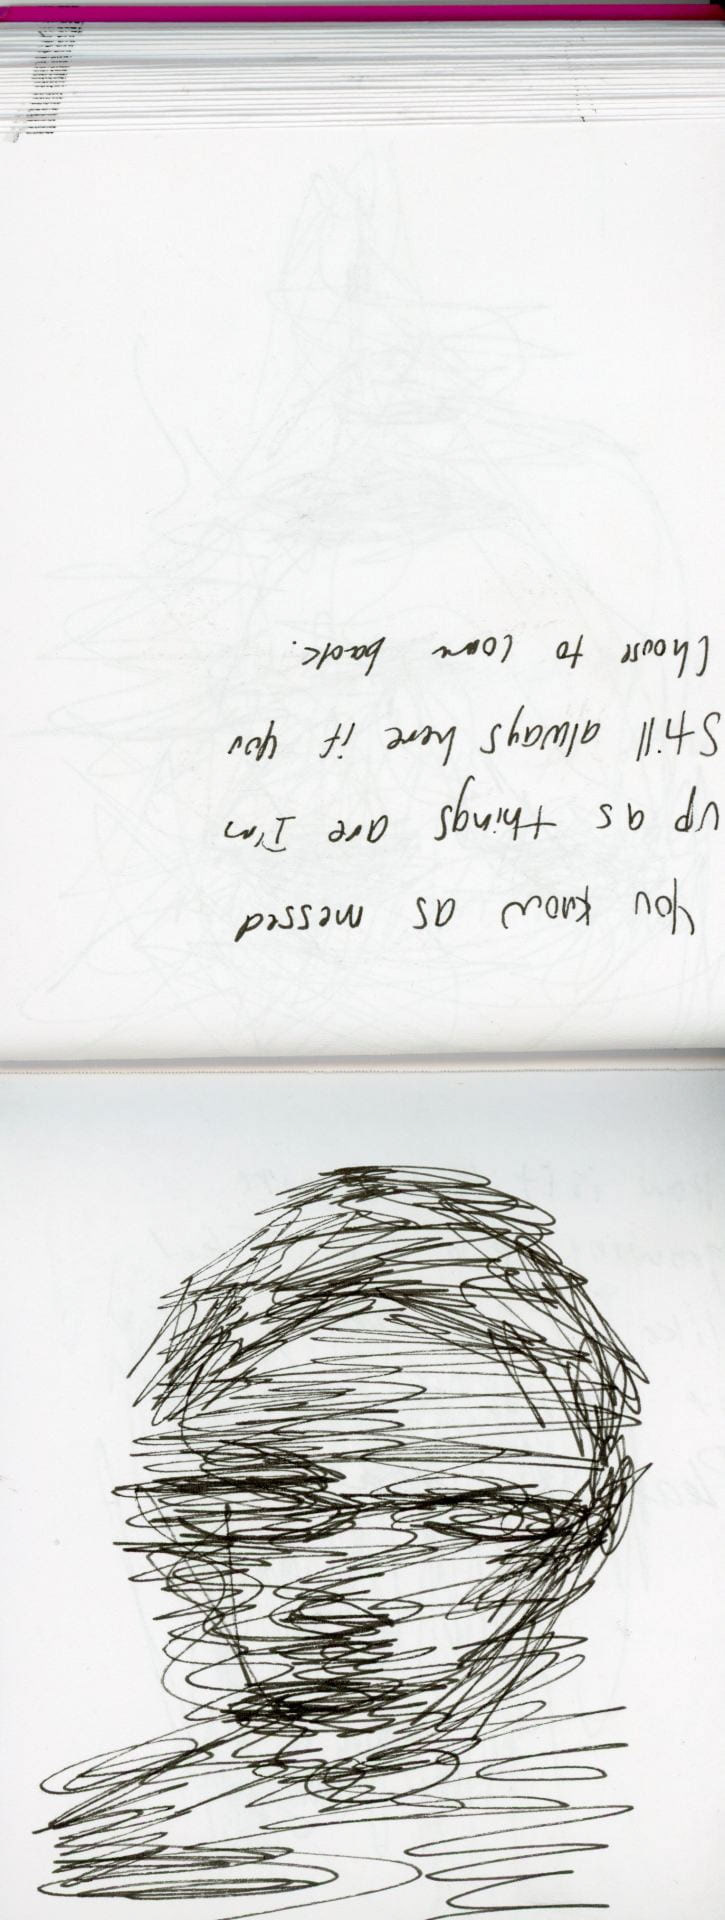 You know as messed
up as things are I'm
Still always here if you
Choose to come back.